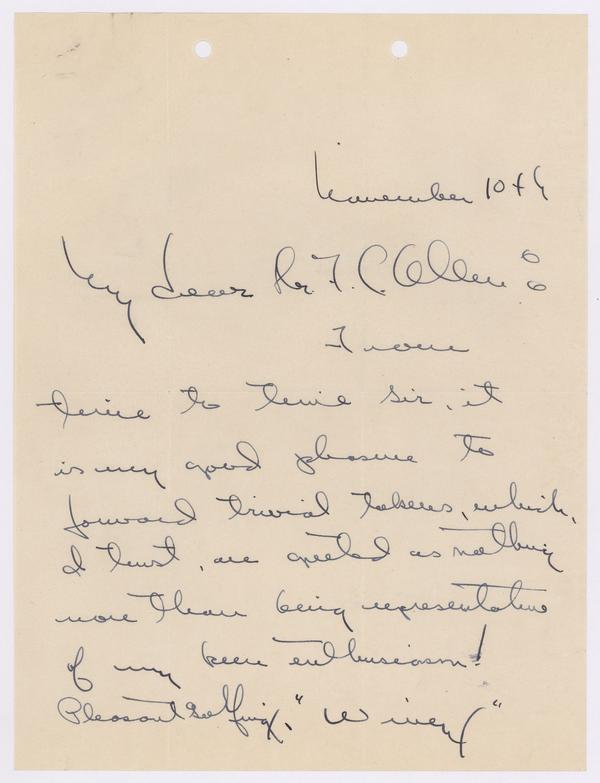 November 10th
My dear Mr F. C. Allen:
From
time to time sir, it
is my good pleasure to
forward trivial tokens, which,
I trust, are greeted as nothing
more than being representative
of my keen enthusiasm!
Pleasant golfing, "